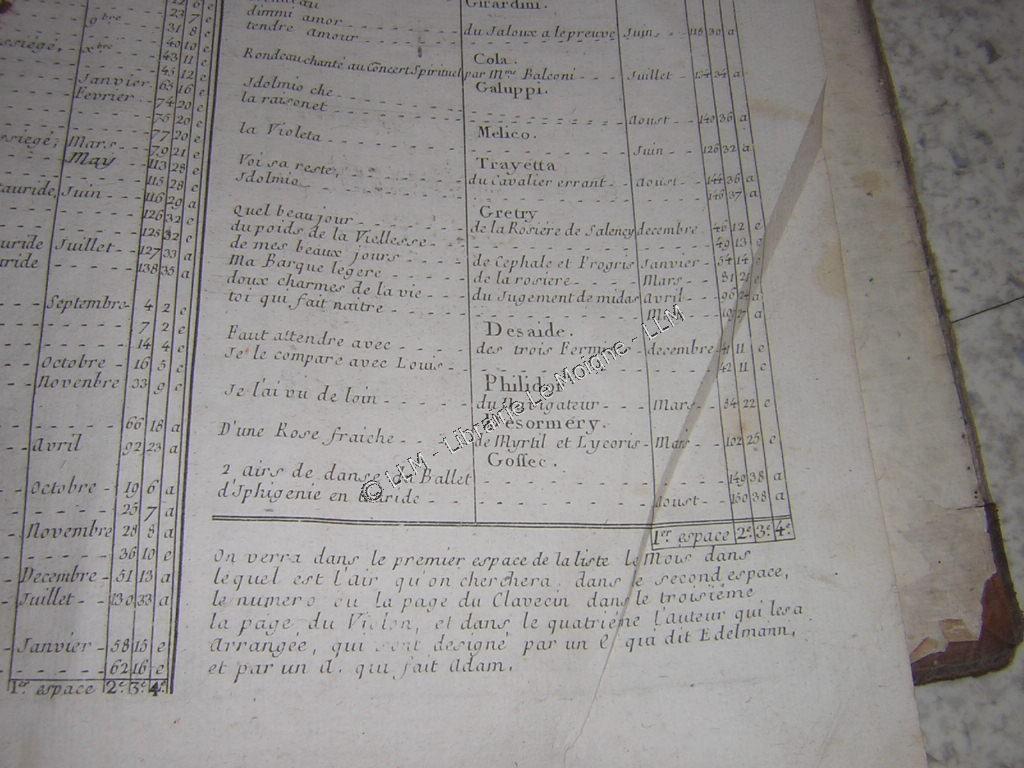 9bre
23 7 e
31 8 e
ssiégé, xbre 40 10 e
43 11 e
45 12 e
Janvier 63 16 e
Fevrier 74 20 e
75 20 e
77 20 e
ssiégé; Mars 79 21 e
May 113 28 e
115 28 e
auride, Juin 116 29 a
126 32 e
128 32 e
auride Juillet 127 33 a
uride 138 35 a
Septembre 4 2 e
7 2 e
14 4 e
Octobre 16 5 e
Novenbre 33 9 e
66 18 a
avril 92 23 a
Octobre 19 6 a
25 7 a
Novembre 28 8 a
36 10 e
Decembre 51 13 a
Juillet 130 33 a
Janvier 58 15 e
62 16 e
1er espace 2e 3e 4e
Girardini.
dimmi amor
tendre amour du Jaloux a lepreuve Juin 30 a
Cola.
Rondeau chanté au Concert Spirituel par Mme Balconi Juillet 134 34 a
Galuppi.
Jdolmio che
la raisonet aoust 140 36 a
Melico.
la Violeta Juin 126 32 a
Trayetta
Voi sa reste, du Cavalier errant aoust 144 36 a
Jdolmio 146 37 a
Gretry
Quel beau jour de la Rosiere de Salency decembre 46 12 e
du poids de la Viellesse 49 13 e
de mes beaux jours de Cephale et Progris Janvier 54 14 e
Ma Barque légere de la rosiere Mars 81 21 e
doux charmes de la vie du Jugement de midas avril 96 24 a
toi qui fait naitre 27 a
Desaide.
Faut attendre avec des trois Fermiers decembre 41 11 e
Je le compare avec Louis 42 11 e
Philidor
Je l'ai vu de loin du Navigateur Mars 84 22 e
Desormery.
D'une Rose fraiche de Myrtil et Lycoris Mai 102 25 e
Gossec.
2 airs de danse du Ballet 149 38 a
d'Iphigenie en Tauride aoust 150 38 a
1er espace 2e 3e 4e
On verra dans le premier espace de la liste le Mois dans
lequel est l'air qu'on cherchera, dans le second espace,
le numero ou la page du Clavecin dans le troisiéme
la page du Violon, et dans le quatrieme l'auteur qui les a
Arrangée, qui sont designé par un e qui dit Edelmann,
et par un a. qui fait Adam.
© LLM - Librairie Le Moigne - LLM